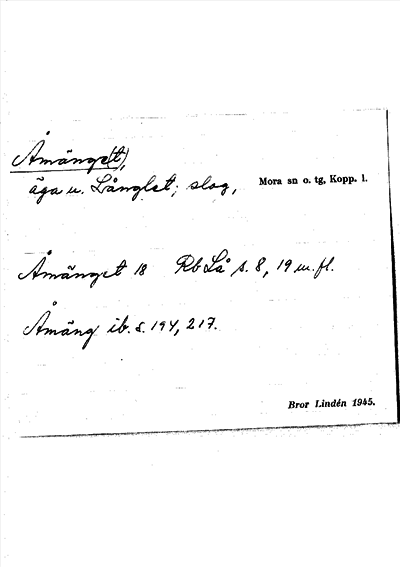 Åmänge(t),
äga u. Långlet; slog, Mora sn o. tg, Kopp. l.
Åmänget 18 Rb Lå s. 8, 19 m. fl.
Åmäng ib. s. 194, 217.
Bror Lindén 1945.